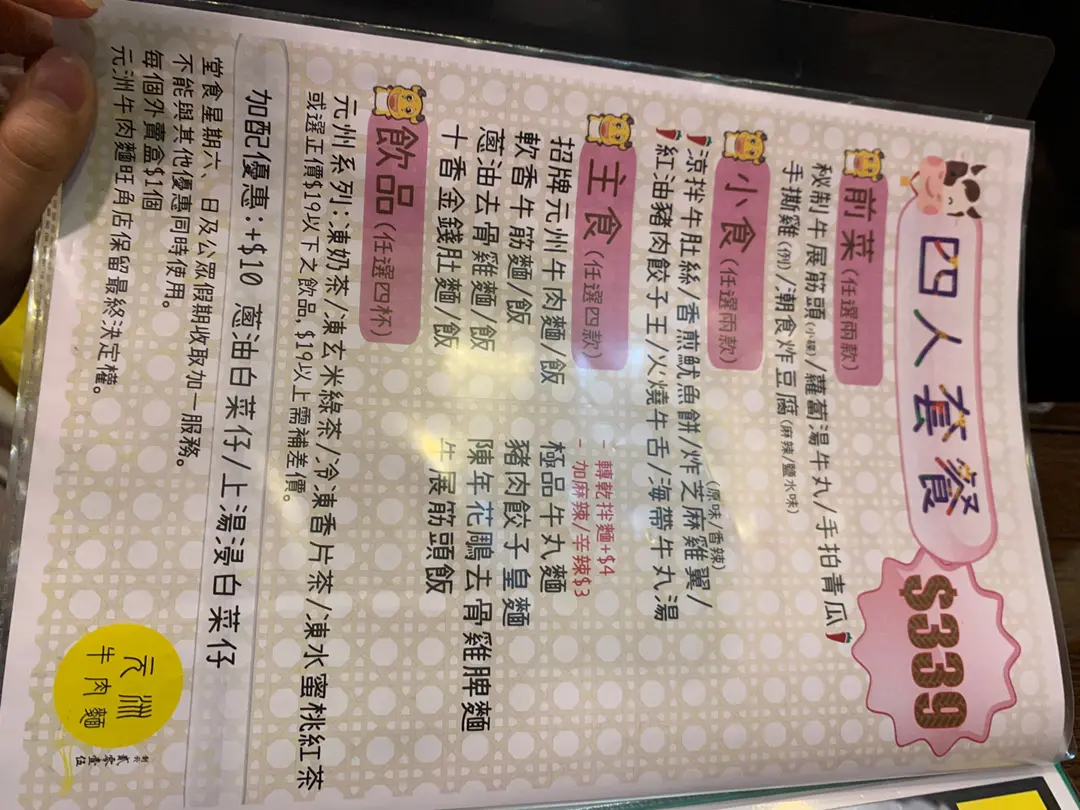 四人套餐
$339
前菜(任選兩款)
秘制牛展筋頭(小味)/蘿蔔湯牛丸/手拍青瓜
手撕雞(例)/潮食炸豆腐(麻辣/鹽水味)
小食(任選兩款)
(原味/香辣)
涼拌牛肚絲/香煎魷魚餅/炸芝麻雞翼/
紅油豬肉餃子王/火燒牛舌/海帶牛丸湯
主食(任選四款)
- 轉乾拌麵+$4
- 加麻辣/辛辣$3
招牌元州牛肉麵/飯 極品牛丸麵
軟香牛筋麵/飯 豬肉餃子皇麵
蔥油去骨雞麵/飯 陳年花鵰去骨雞脾麵
十香金錢肚麵/飯 牛展筋頭飯
飲品(任選四杯)
元州系列:凍奶茶/凍玄米綠茶/冷凍香片茶/凍水蜜桃紅茶
或選正價$19以下之飲品,$19以上需補差價。
加配優惠:+$10 蔥油白菜仔/上湯浸白菜仔
堂食星期六、日及公眾假期收取加一服務。
不能與其他優惠同時使用。
每個外賣盒$1個
元洲牛肉麵旺角店保留最終決定權。
元洲
牛肉麵
貳零壹伍